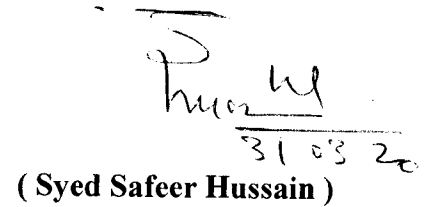 31 03 20
( Syed Safeer Hussain )